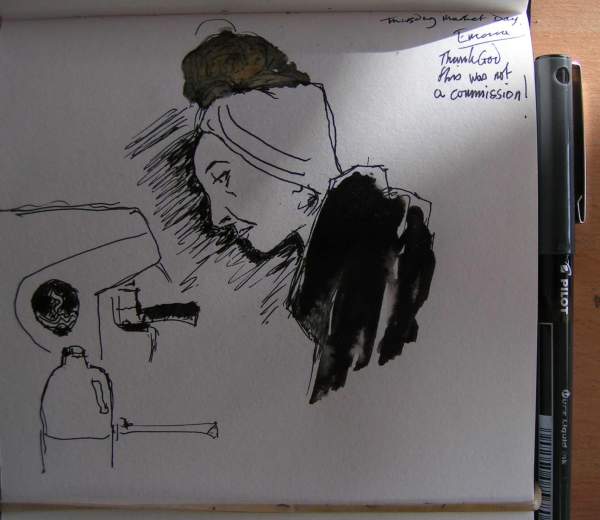 Thursday Market Day.
Emma
Thank God
this was not
a commission!
PILOT
Pure Liquid ink